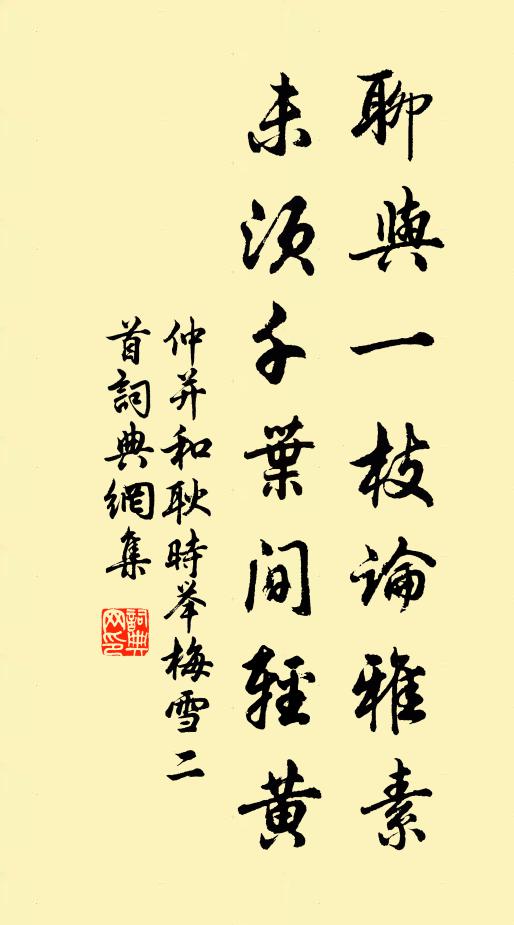 聊與一枝論雅素
未須千葉間輕黄
仲并和耿時举梅雪二
首詞典網集
詞典網印